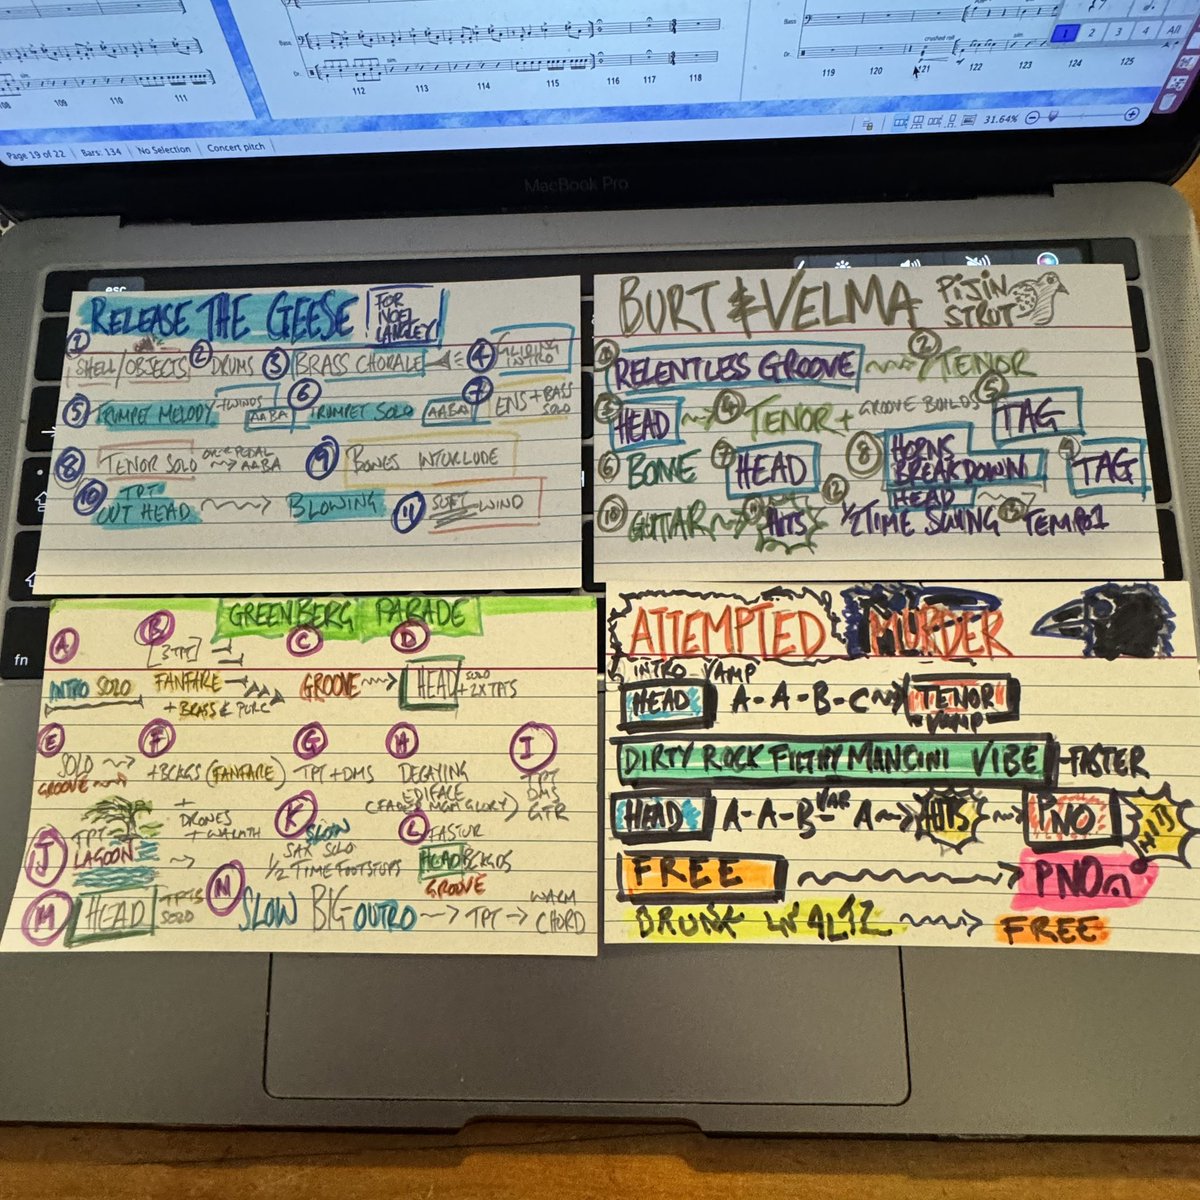 Bass
Dr.
sim
108 109 110 111
Bass
Dr.
sim
112 113 114 115 116 117 118
Bass
Dr.
crushed roll
sim
119 120 121 122 123 124 125
1 2 3 4 All
31.64%
Page 19 of 22 Bars: 134 No Selection Concert pitch
MacBook Pro
esc
fn
RELEASE THE GEESE FOR NOEL LANGLEY
① SHELL/OBJECTS ② DRUMS ③ BRASS CHORALE ④
⑤ TRUMPET MELODY + WINDS AABA ⑥ TRUMPET SOLO AABA ⑦ ENS + BASS SOLO
⑧ TENOR SOLO OVER PEDAL AABA ⑨ BONES INTERLUDE
⑩ TPT OUT HEAD BLOWING ⑪ SOFT WIND
BURT & VELMA PIJIN STRUT
① RELENTLESS GROOVE ② TENOR
③ HEAD ④ TENOR + GROOVE BUILDS ⑤ TAG
⑥ BONE ⑦ HEAD ⑧ HORNS BREAKDOWN ⑨ TAG
⑩ GUITAR ⑪ HITS ⑫ HEAD 1/2 TIME SWING ⑬ TEMPO 1
GREENBERG PARADE
A B C D
[3 TPT]
INTRO SOLO FANFARE GROOVE HEAD SOLO + 2X TPTS
+ BRASS & PURC
E F G H I
SOLO GROOVE + BCKGS (FANFARE) TPT + DMS DECAYING EDIFACE (FADED MGM GLORY) TPT DMS GTR
J TPT LAGOON + DRONES + WARMTH K SLOW SAX SOLO 1/2 TIME FOOTSTEPS L FASTUR HEAD BCKGDS GROOVE
M HEAD TPTS SOLO N SLOW BIG OUTRO → TPT → WARM CHORD
ATTEMPTED MURDER
INTRO VAMP
HEAD A-A-B-C TENOR VAMP
DIRTY ROCK FILTHY MANCINI VIBE FASTER
HEAD A-A-B-VAR A HITS PNO HITS
FREE PNO
DRUNK WALTZ FREE